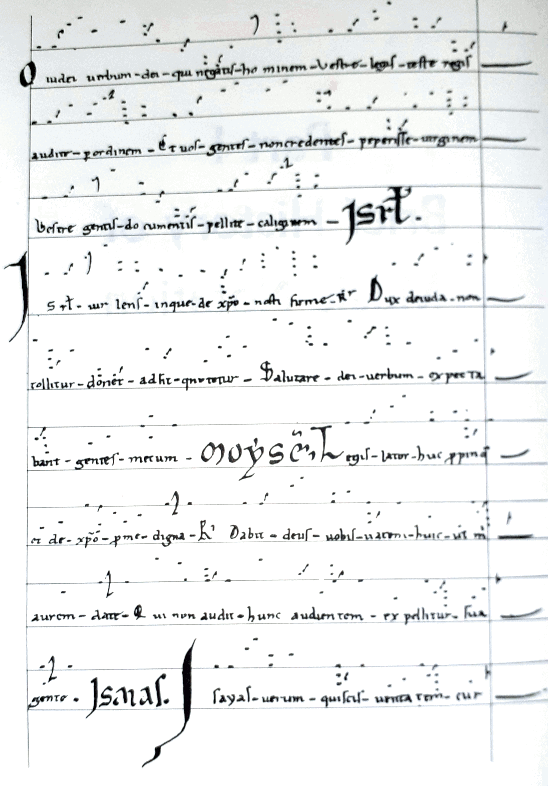 O iudei uerbum-dei-qui negastis-ho minem-Vestre-legis-teste regis
audite-p ordinem-Et uos-gentes-noncredentes-peperisse-uirginem
Vestre gentis-do cumentis-pellite-caliginem-Isrł.
Isrł-uir lenis-inque-de xp̄o-nosti firme-R' Dux deiuda-non
tollitur-donec-adsit-
Salutare-dei-uerbum-expecta
bunt-gentes-mecum-Moyses, Legis-lator-huc ppinq
et de-xp̄o-pme-digna-R' Dabit-deus-uobis-uatem-huic-ut m
aurem-date-Q ui non audit-hunc audientem-expellitur-sua
gente. Isaias. Isayas-uerum-quiscis-ueritatem-cur